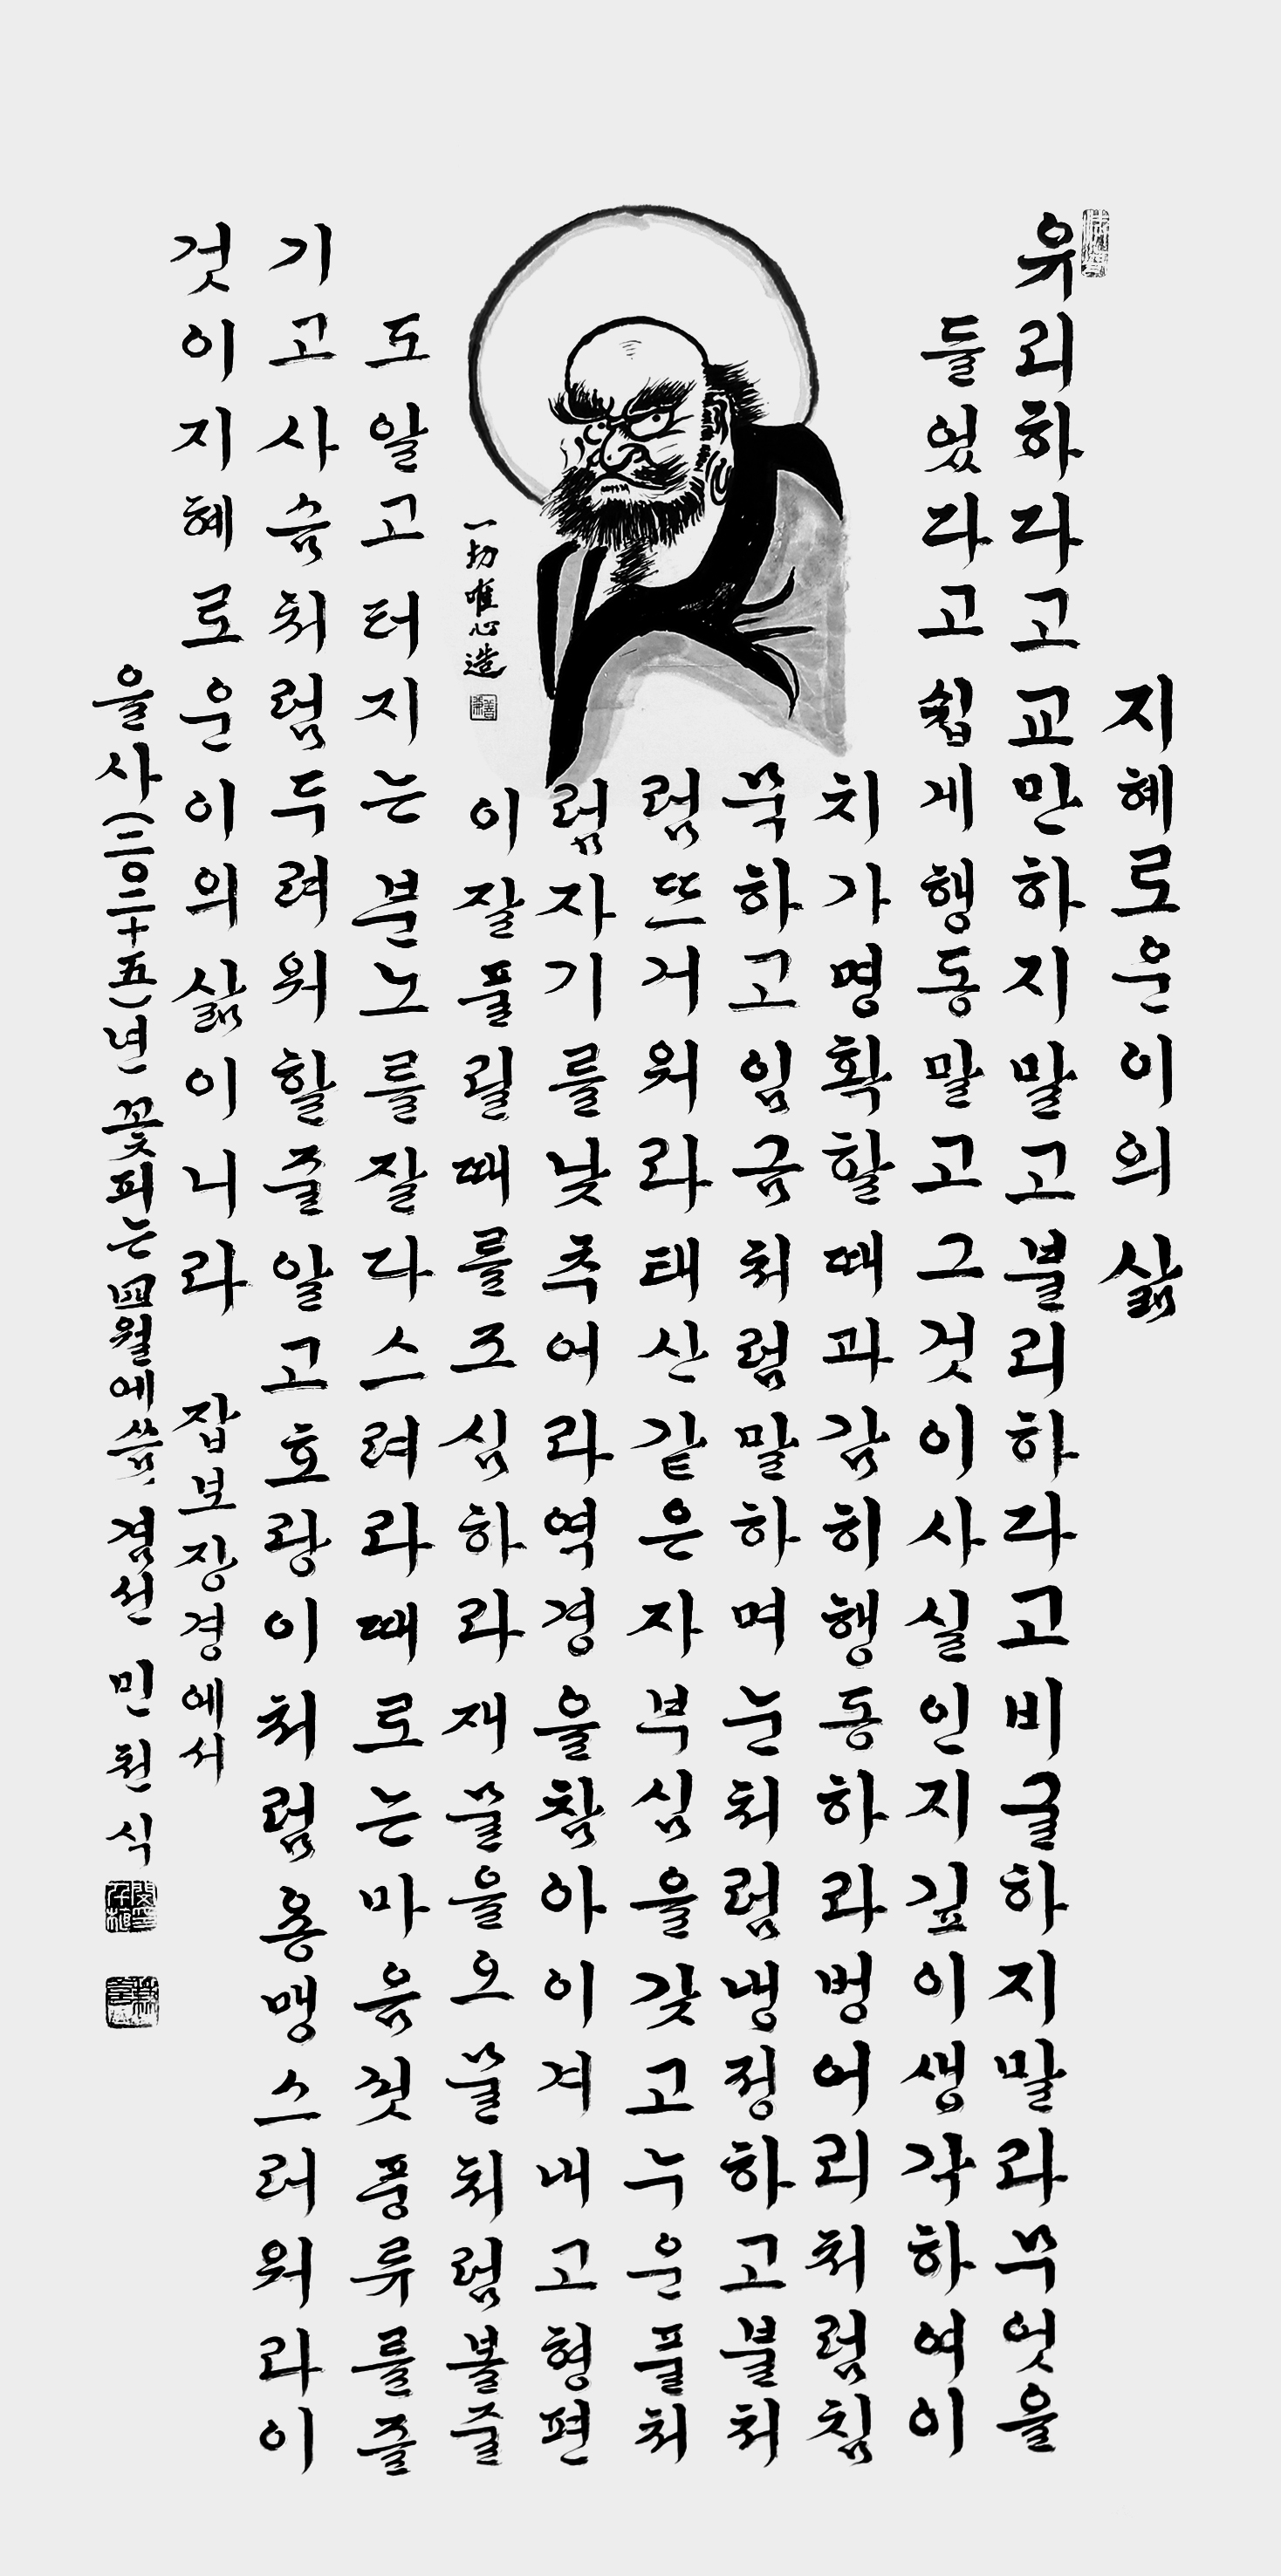 지혜로운이의삶
유리하다고교만하지말고불리하다고비굴하지말라무엇을
들었다고쉽게행동말고그것이사실인지깊이생각하여이
치가명확할때과감히행동하라벙어리처럼침
묵하고임금처럼말하며눈처럼냉정하고불처
럼뜨거워라태산같은자부심을갖고누운풀처
럼자기를낮추어라역경을참아이겨내고형편
이잘풀릴때를조심하라재물을오물처럼볼줄
一切唯心造
도알고터지는분노를잘다스려라때로는마음껏풍류를즐
기고사슴처럼두려워할줄알고호랑이처럼용맹스러워라이
것이지혜로운이의삶이니라 잡보장경에서
을사(二〇二十五)년 꽃피는四월에씀 겸선 민천식